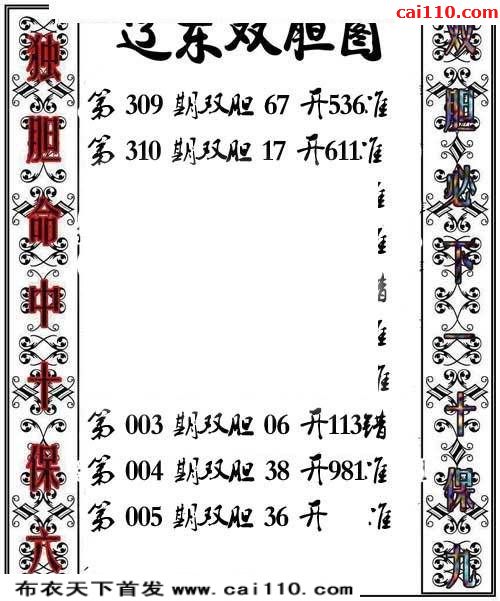 cai110.com
辽东双胆图
独胆命中十保六
双胆必下一十保九
第 309 期双胆 67 开536准
第 310 期双胆 17 开611准
准
准
错
准
准
第 003 期双胆 06 开113错
第 004 期双胆 38 开981准
第 005 期双胆 36 开 准
布衣天下首发 www.cai110.com